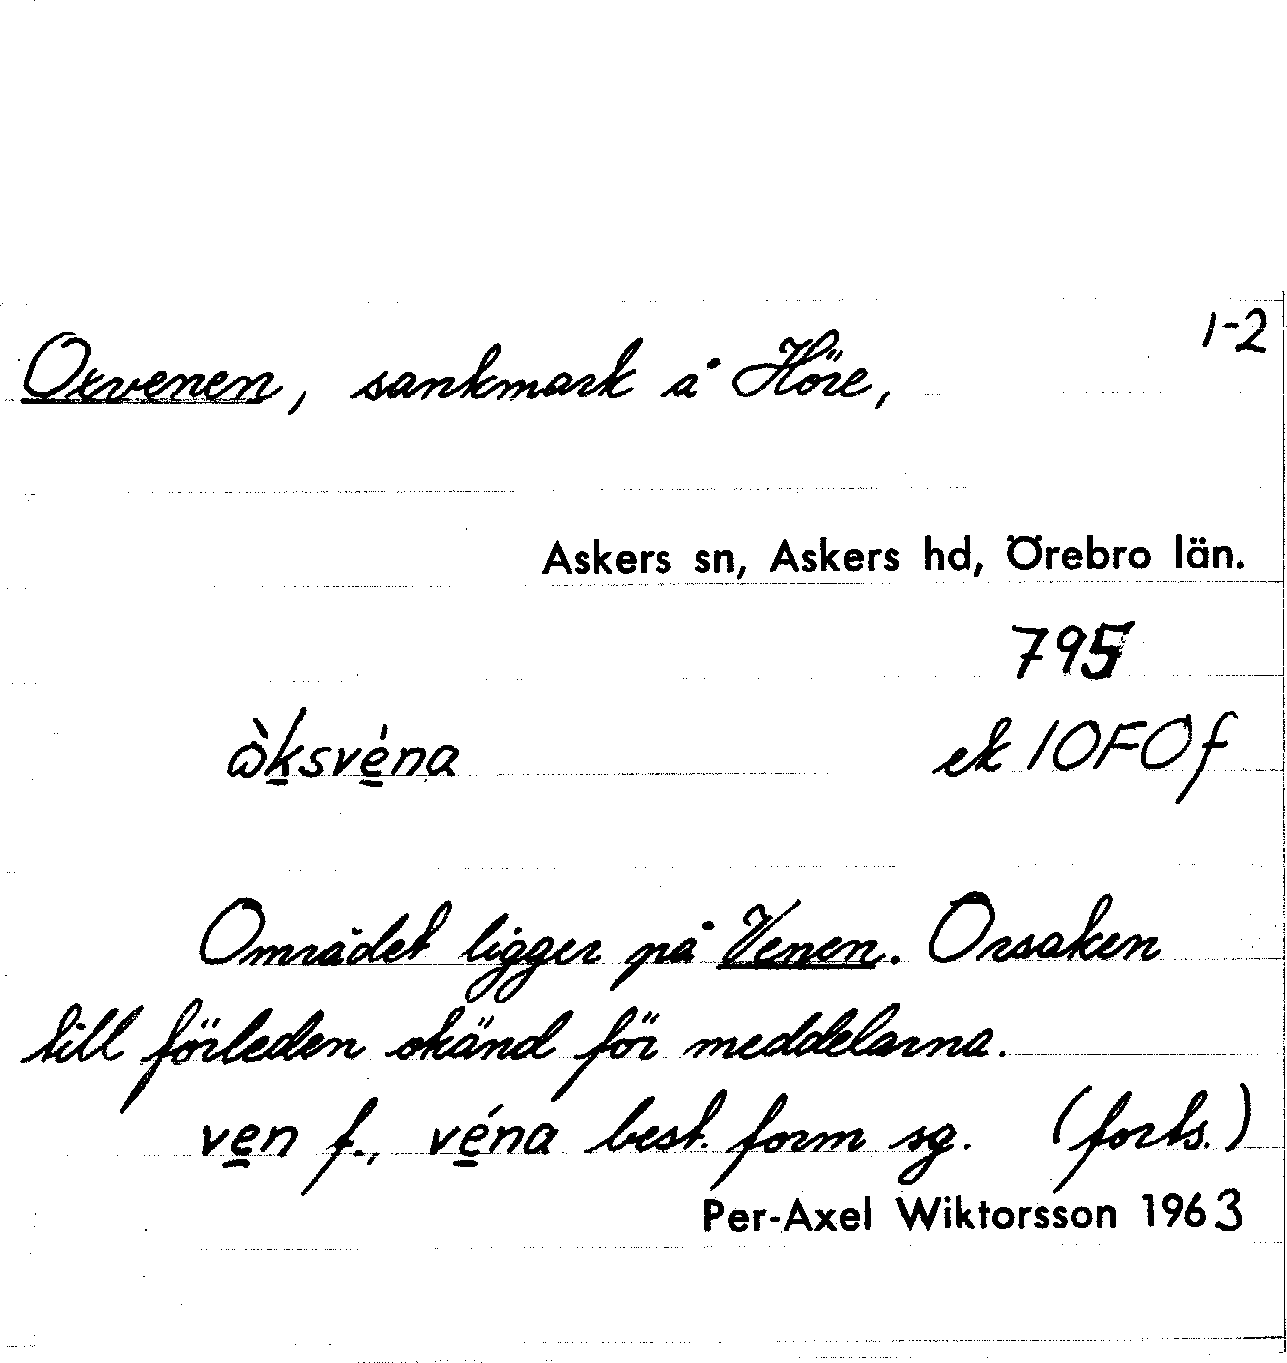 1-2
Oxvenen, sankmark å Höre,
Askers sn, Askers hd, Örebro län.
795
ὼksvéna ek 10F0f
Området ligger på Venen. Orsaken
till förleden okänd för meddelarna.
ven f., véna best. form sg. (forts.)
Per-Axel Wiktorsson 1963